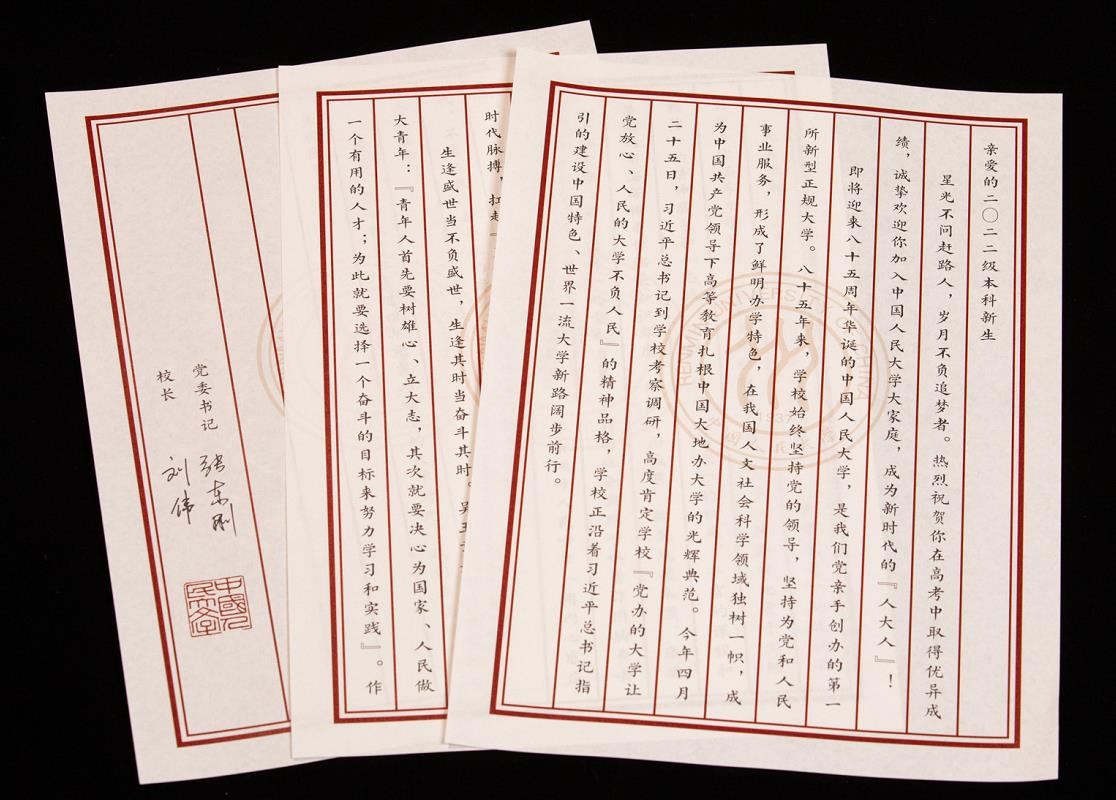 亲爱的二〇二二级本科新生
星光不问赶路人，岁月不负追梦者。热烈祝贺你在高考中取得优异成
绩，诚挚欢迎你加入中国人民大学大家庭，成为新时代的『人大人』！
即将迎来八十五周年华诞的中国人民大学，是我们党亲手创办的第一
所新型正规大学。八十五年来，学校始终坚持党的领导，坚持为党和人民
事业服务，形成了鲜明办学特色，在我国人文社会科学领域独树一帜，成
为中国共产党领导下高等教育扎根中国大地办大学的光辉典范。今年四月
二十五日，习近平总书记到学校考察调研，高度肯定学校『党办的大学让
党放心、人民的大学不负人民』的精神品格，学校正沿着习近平总书记指
引的建设中国特色、世界一流大学新路阔步前行。
RENMIN UNIVERSITY OF CHINA
1937
时代脉搏，扛起
生逢盛世当不负盛世，生逢其时当奋斗其时。吴玉
大青年：『青年人首先要树雄心、立大志，其次就要决心为国家、人民做
一个有用的人才；为此就要选择一个奋斗的目标来努力学习和实践』。作
党委书记 张东刚
校长 刘伟